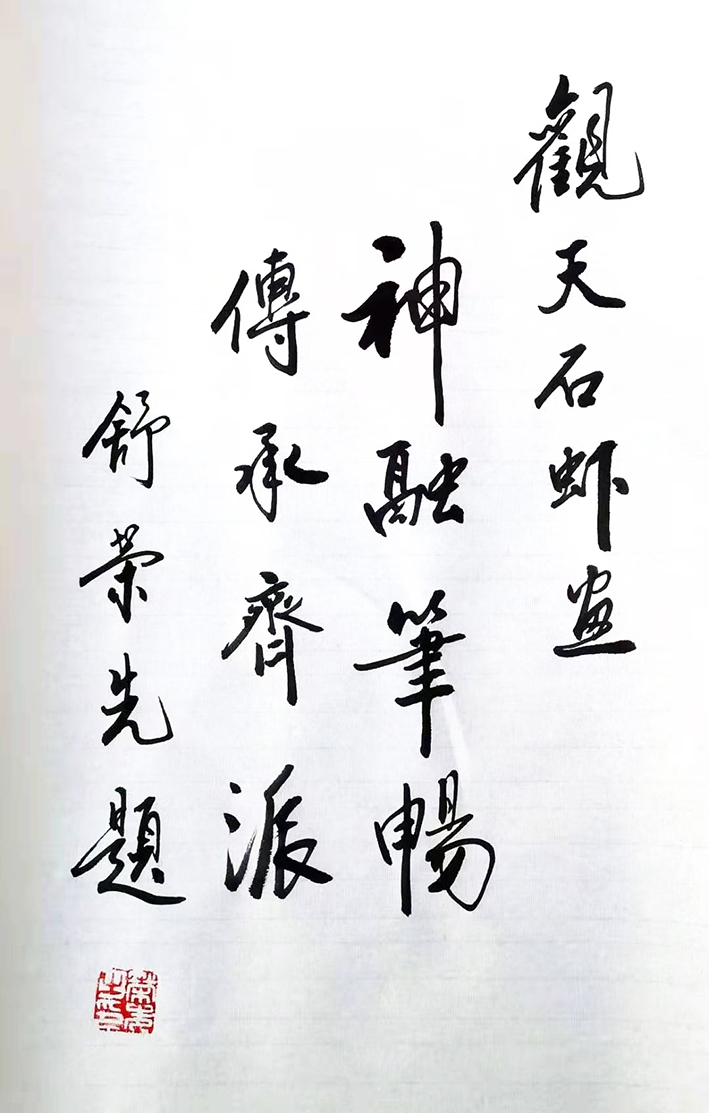 觀天石虾畫
神融筆暢
傳承齊派
舒榮先題